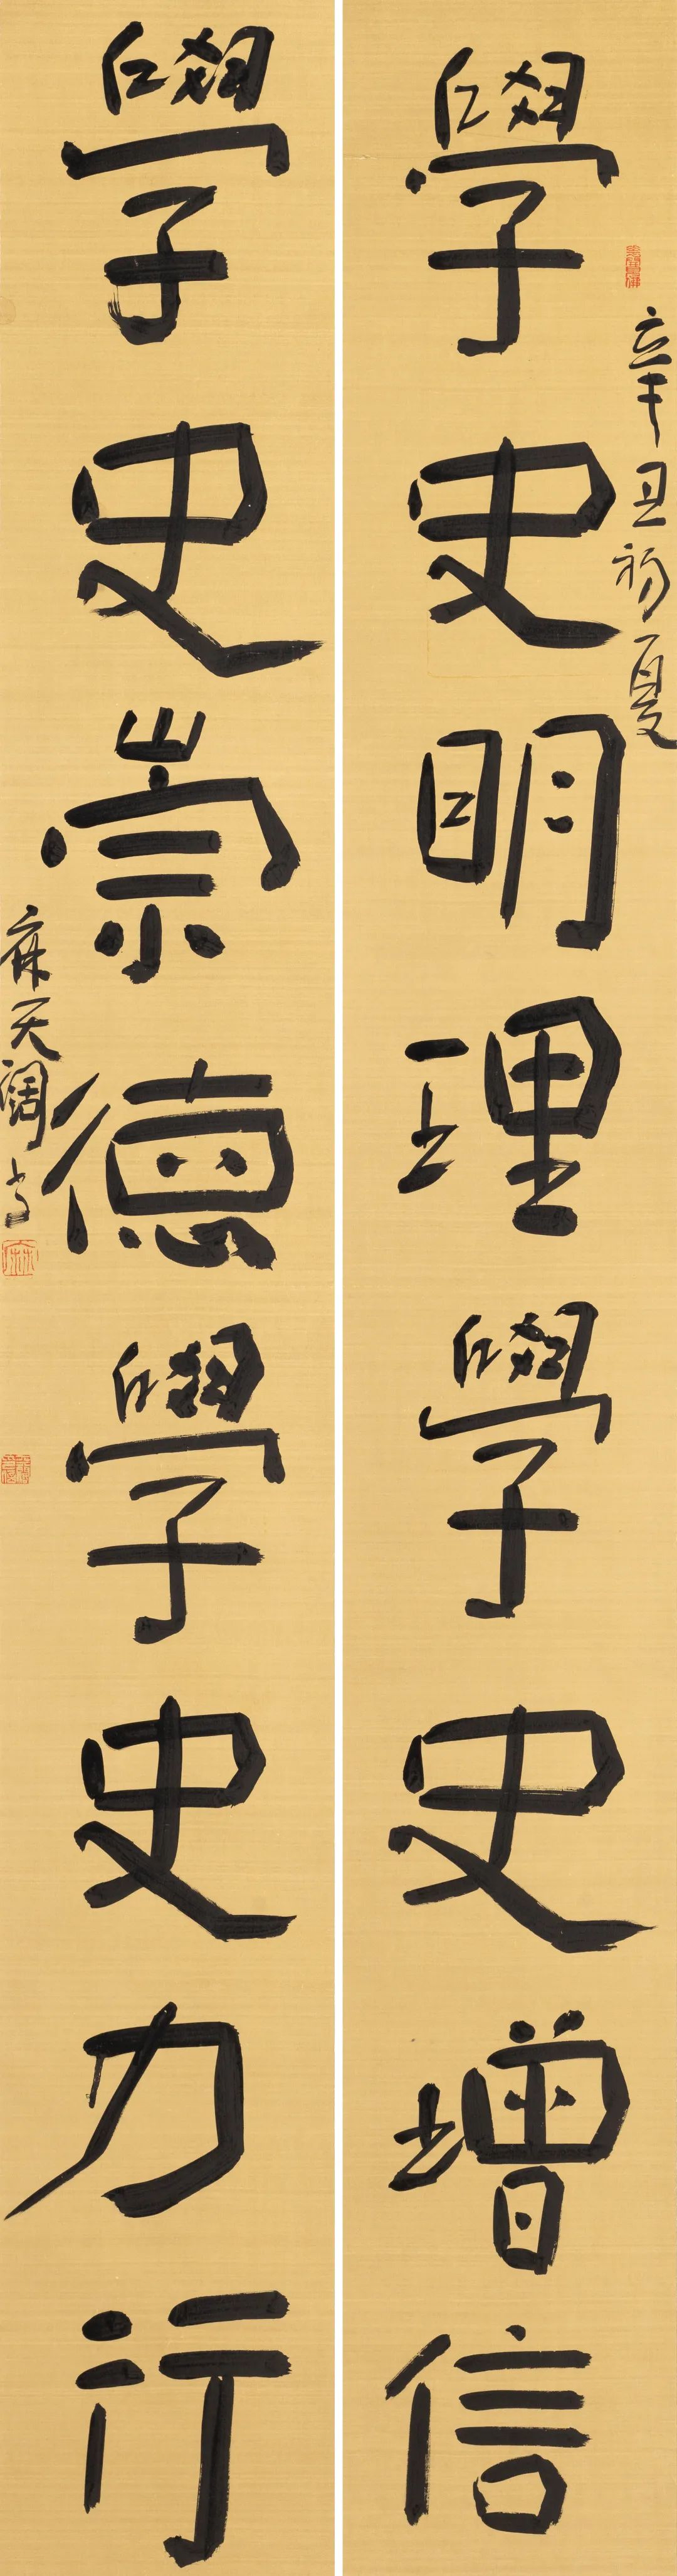 辛丑初夏
學史明理學史增信
學史崇德學史力行
麻天闊書